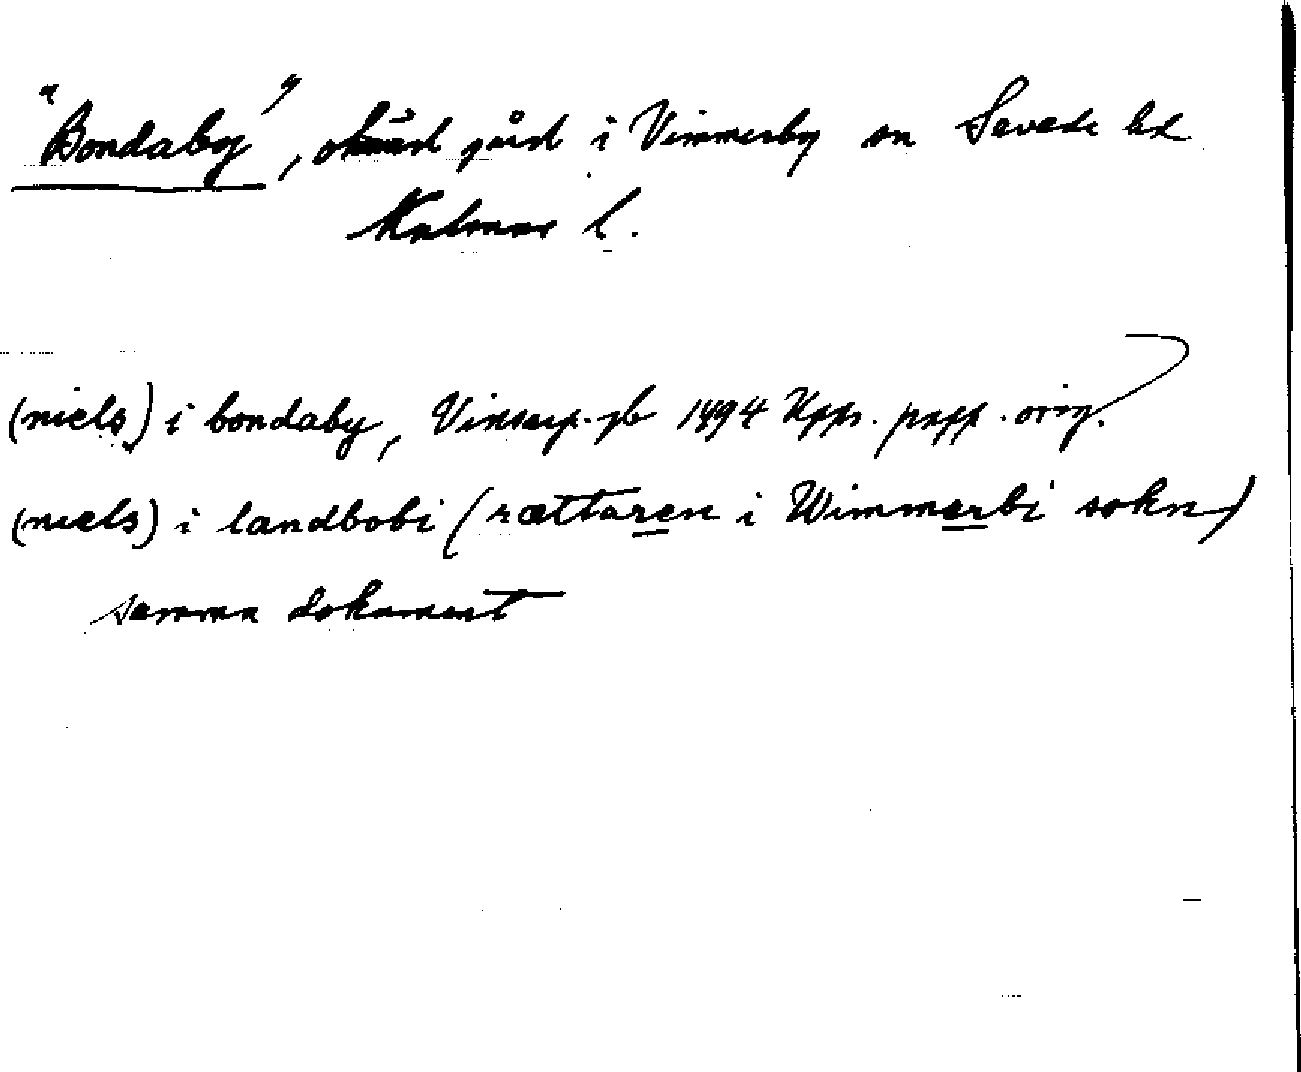 "Bondaby", okänd gård i Vimmerby sn Sevede hd
Kalmar l.
(niels) i bondaby, 1494 Upps. papp. orig.
(niels) i landbobi (rættaren i Wimmerbi sokn)
samma dokument